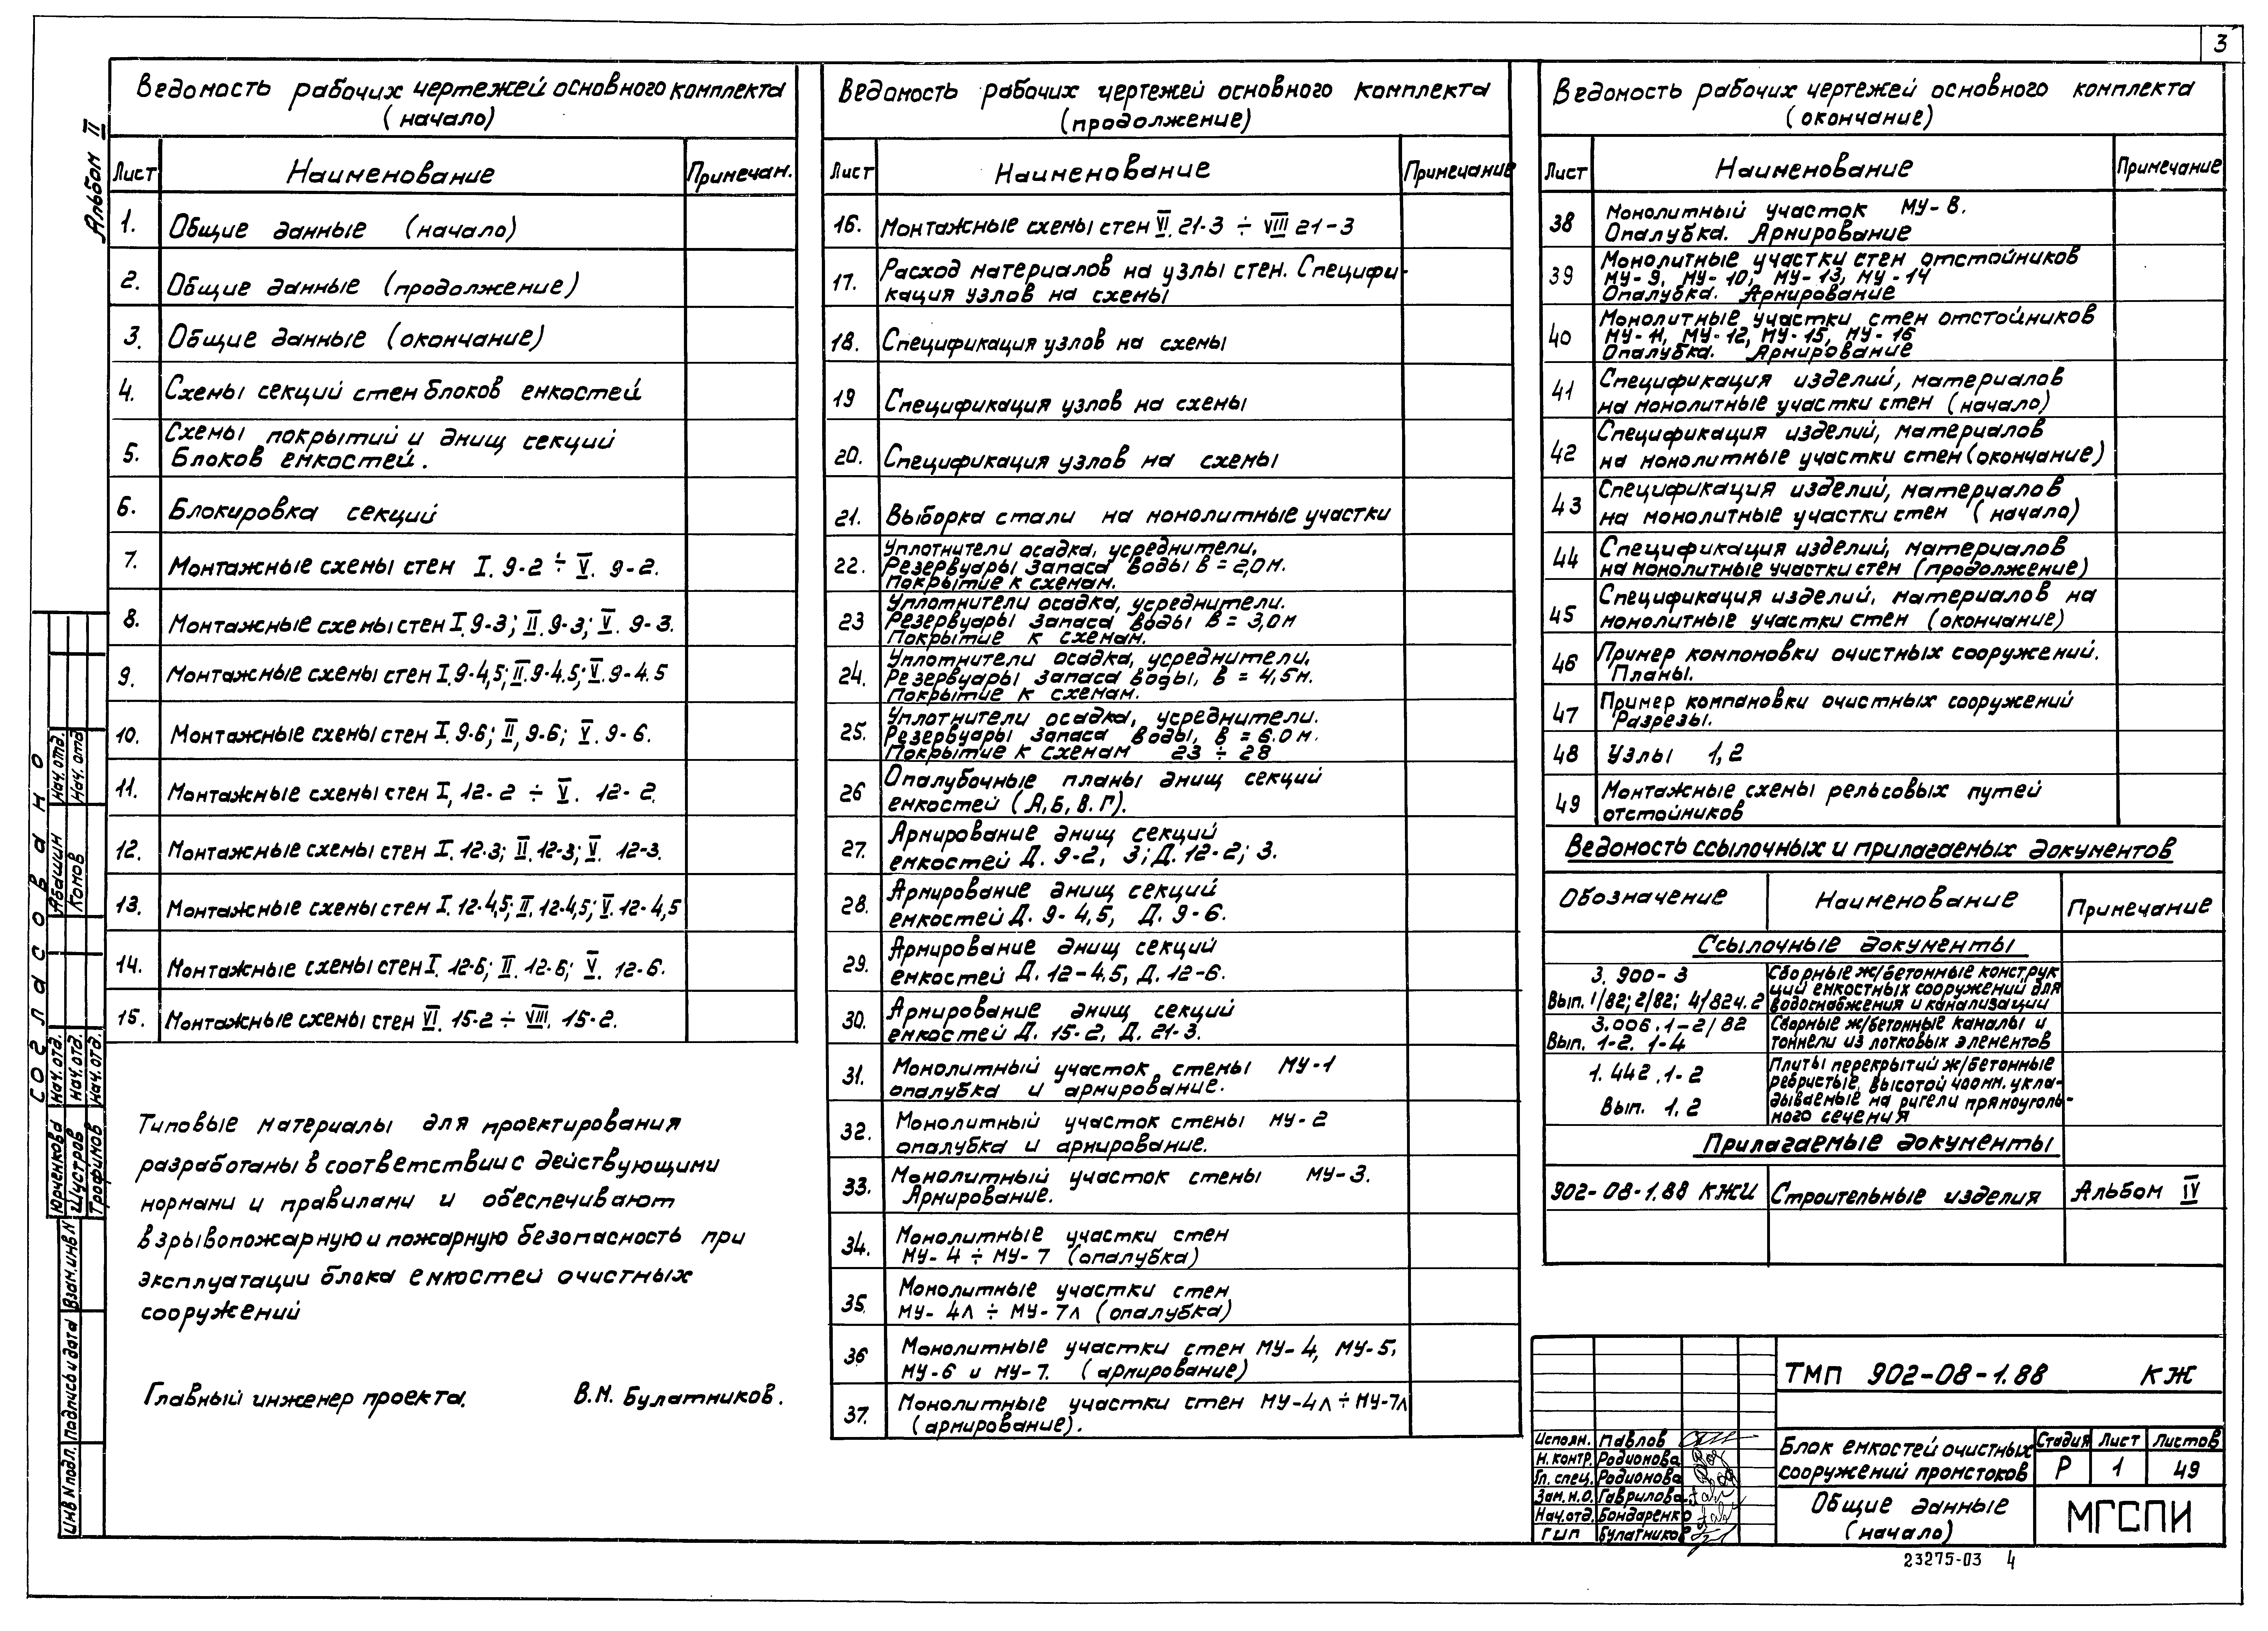 3
Альбом II
Ведомость рабочих чертежей основного комплекта
(начало)
Лист Наименование Примечан.
1. Общие данные (начало)
2. Общие данные (продолжение)
3. Общие данные (окончание)
4. Схемы секций стен блоков емкостей
5. Схемы покрытий и днищ секций
блоков емкостей.
6. Блокировка секций
7. Монтажные схемы стен I. 9-2 ÷ V. 9-2.
8. Монтажные схемы стен I. 9-3; II. 9-3; V. 9-3.
9. Монтажные схемы стен I. 9-4,5; II. 9-4.5; V. 9-4.5
10. Монтажные схемы стен I. 9-6; II, 9-6; V. 9-6.
11. Монтажные схемы стен I, 12-2 ÷ V. 12-2.
12. Монтажные схемы стен I. 12-3; II. 12-3; V. 12-3.
13. Монтажные схемы стен I. 12-4,5; II. 12-4,5; V. 12-4,5
14. Монтажные схемы стен I. 12-6; II. 12-6; V. 12-6.
15. Монтажные схемы стен VI. 15-2 ÷ VIII. 15-2.
Типовые материалы для проектирования
разработаны в соответствии с действующими
нормами и правилами и обеспечивают
взрывопожарную и пожарную безопасность при
эксплуатации блока емкостей очистных
сооружений
Главный инженер проекта. В.М. Булатников.
Ведомость рабочих чертежей основного комплекта
(продолжение)
Лист Наименование Примечание
16. Монтажные схемы стен VI. 21-3 ÷ VIII 21-3
17. Расход материалов на узлы стен. Специфи-
кация узлов на схемы
18. Спецификация узлов на схемы
19 Спецификация узлов на схемы
20. Спецификация узлов на схемы
21. Выборка стали на монолитные участки
22. Уплотнители осадка, усреднители.
Резервуары запаса воды В = 2,0 м.
Покрытие к схемам.
23 Уплотнители осадка, усреднители.
Резервуары запаса воды В = 3,0 м
Покрытие к схемам.
24. Уплотнители осадка, усреднители.
Резервуары запаса воды, В = 4,5 м.
Покрытие к схемам.
25. Уплотнители осадка, усреднители.
Резервуары запаса воды, В = 6.0 м.
Покрытие к схемам 23 ÷ 28
26 Опалубочные планы днищ секций
емкостей (А, Б, В. Г).
27. Армирование днищ секций
емкостей Д. 9-2, 3; Д. 12-2; 3.
28. Армирование днищ секций
емкостей Д. 9-4,5, Д. 9-6.
29. Армирование днищ секций
емкостей Д. 12-4.5, Д. 12-6.
30. Армирование днищ секций
емкостей Д. 15-2, Д. 21-3.
31. Монолитный участок стены МУ-1
опалубка и армирование.
32. Монолитный участок стены МУ-2
опалубка и армирование.
33. Монолитный участок стены МУ-3.
Армирование.
34. Монолитные участки стен
МУ-4 ÷ МУ-7 (опалубка)
35. Монолитные участки стен
МУ-4л ÷ МУ-7л (опалубка)
36 Монолитные участки стен МУ-4, МУ-5,
МУ-6 и МУ-7. (армирование)
37. Монолитные участки стен МУ-4л ÷ МУ-7л
(армирование).
Ведомость рабочих чертежей основного комплекта
(окончание)
Лист Наименование Примечание
38 Монолитный участок МУ-8.
Опалубка. Армирование
39 Монолитные участки стен отстойников
МУ-9, МУ-10, МУ-13, МУ-14
Опалубка. Армирование
40 Монолитные участки стен отстойников
МУ-11, МУ-12, МУ-15, МУ-16
Опалубка. Армирование
41 Спецификация изделий, материалов
на монолитные участки стен (начало)
42 Спецификация изделий, материалов
на монолитные участки стен (окончание)
43 Спецификация изделий, материалов
на монолитные участки стен (начало)
44 Спецификация изделий, материалов
на монолитные участки стен (продолжение)
45 Спецификация изделий, материалов на
монолитные участки стен (окончание)
46 Пример компоновки очистных сооружений.
Планы.
47 Пример компановки очистных сооружений
Разрезы.
48 Узлы 1, 2
49 Монтажные схемы рельсовых путей
отстойников
Ведомость ссылочных и прилагаемых документов
Обозначение Наименование Примечание
Ссылочные документы
3. 900-3
Вып. 1/82; 2/82; 4/82 ч. 2
Сборные ж/бетонные конструк
ций емкостных сооружений для
водоснабжения и канализации
3.006.1-2/82
Вып. 1-2. 1-4
Сборные ж/бетонные каналы и
тоннели из лотковых элементов
1. 442. 1-2
Вып. 1. 2
Плиты перекрытий ж/бетонные
ребристые, высотой 400мм. укла-
дываемые на ригели прямоуголь-
ного сечения
Прилагаемые документы
902-08-1.88 КЖИ Строительные изделия Альбом IV
ТМП 902-08-1.88 КЖ
Исполн. Павлов
Н. контр. Родионова
Гл. спец. Родионова
Зам. н.о. Гаврилова
Нач. отд. Бондаренко
ГИП Булатников
Блок емкостей очистных
сооружений промстоков
Стадия Лист Листов
Р 1 49
Общие данные
(начало)
МГСПИ
23275-03 4
Согласовано
Нач. отд. Абашин
Нач. отд Комов
Нач. отд. Юрченкова
Нач. отд. Шустров
Нач. отд. Трофимов
Взам. инв N
Подпись и дата
Инв N подл.